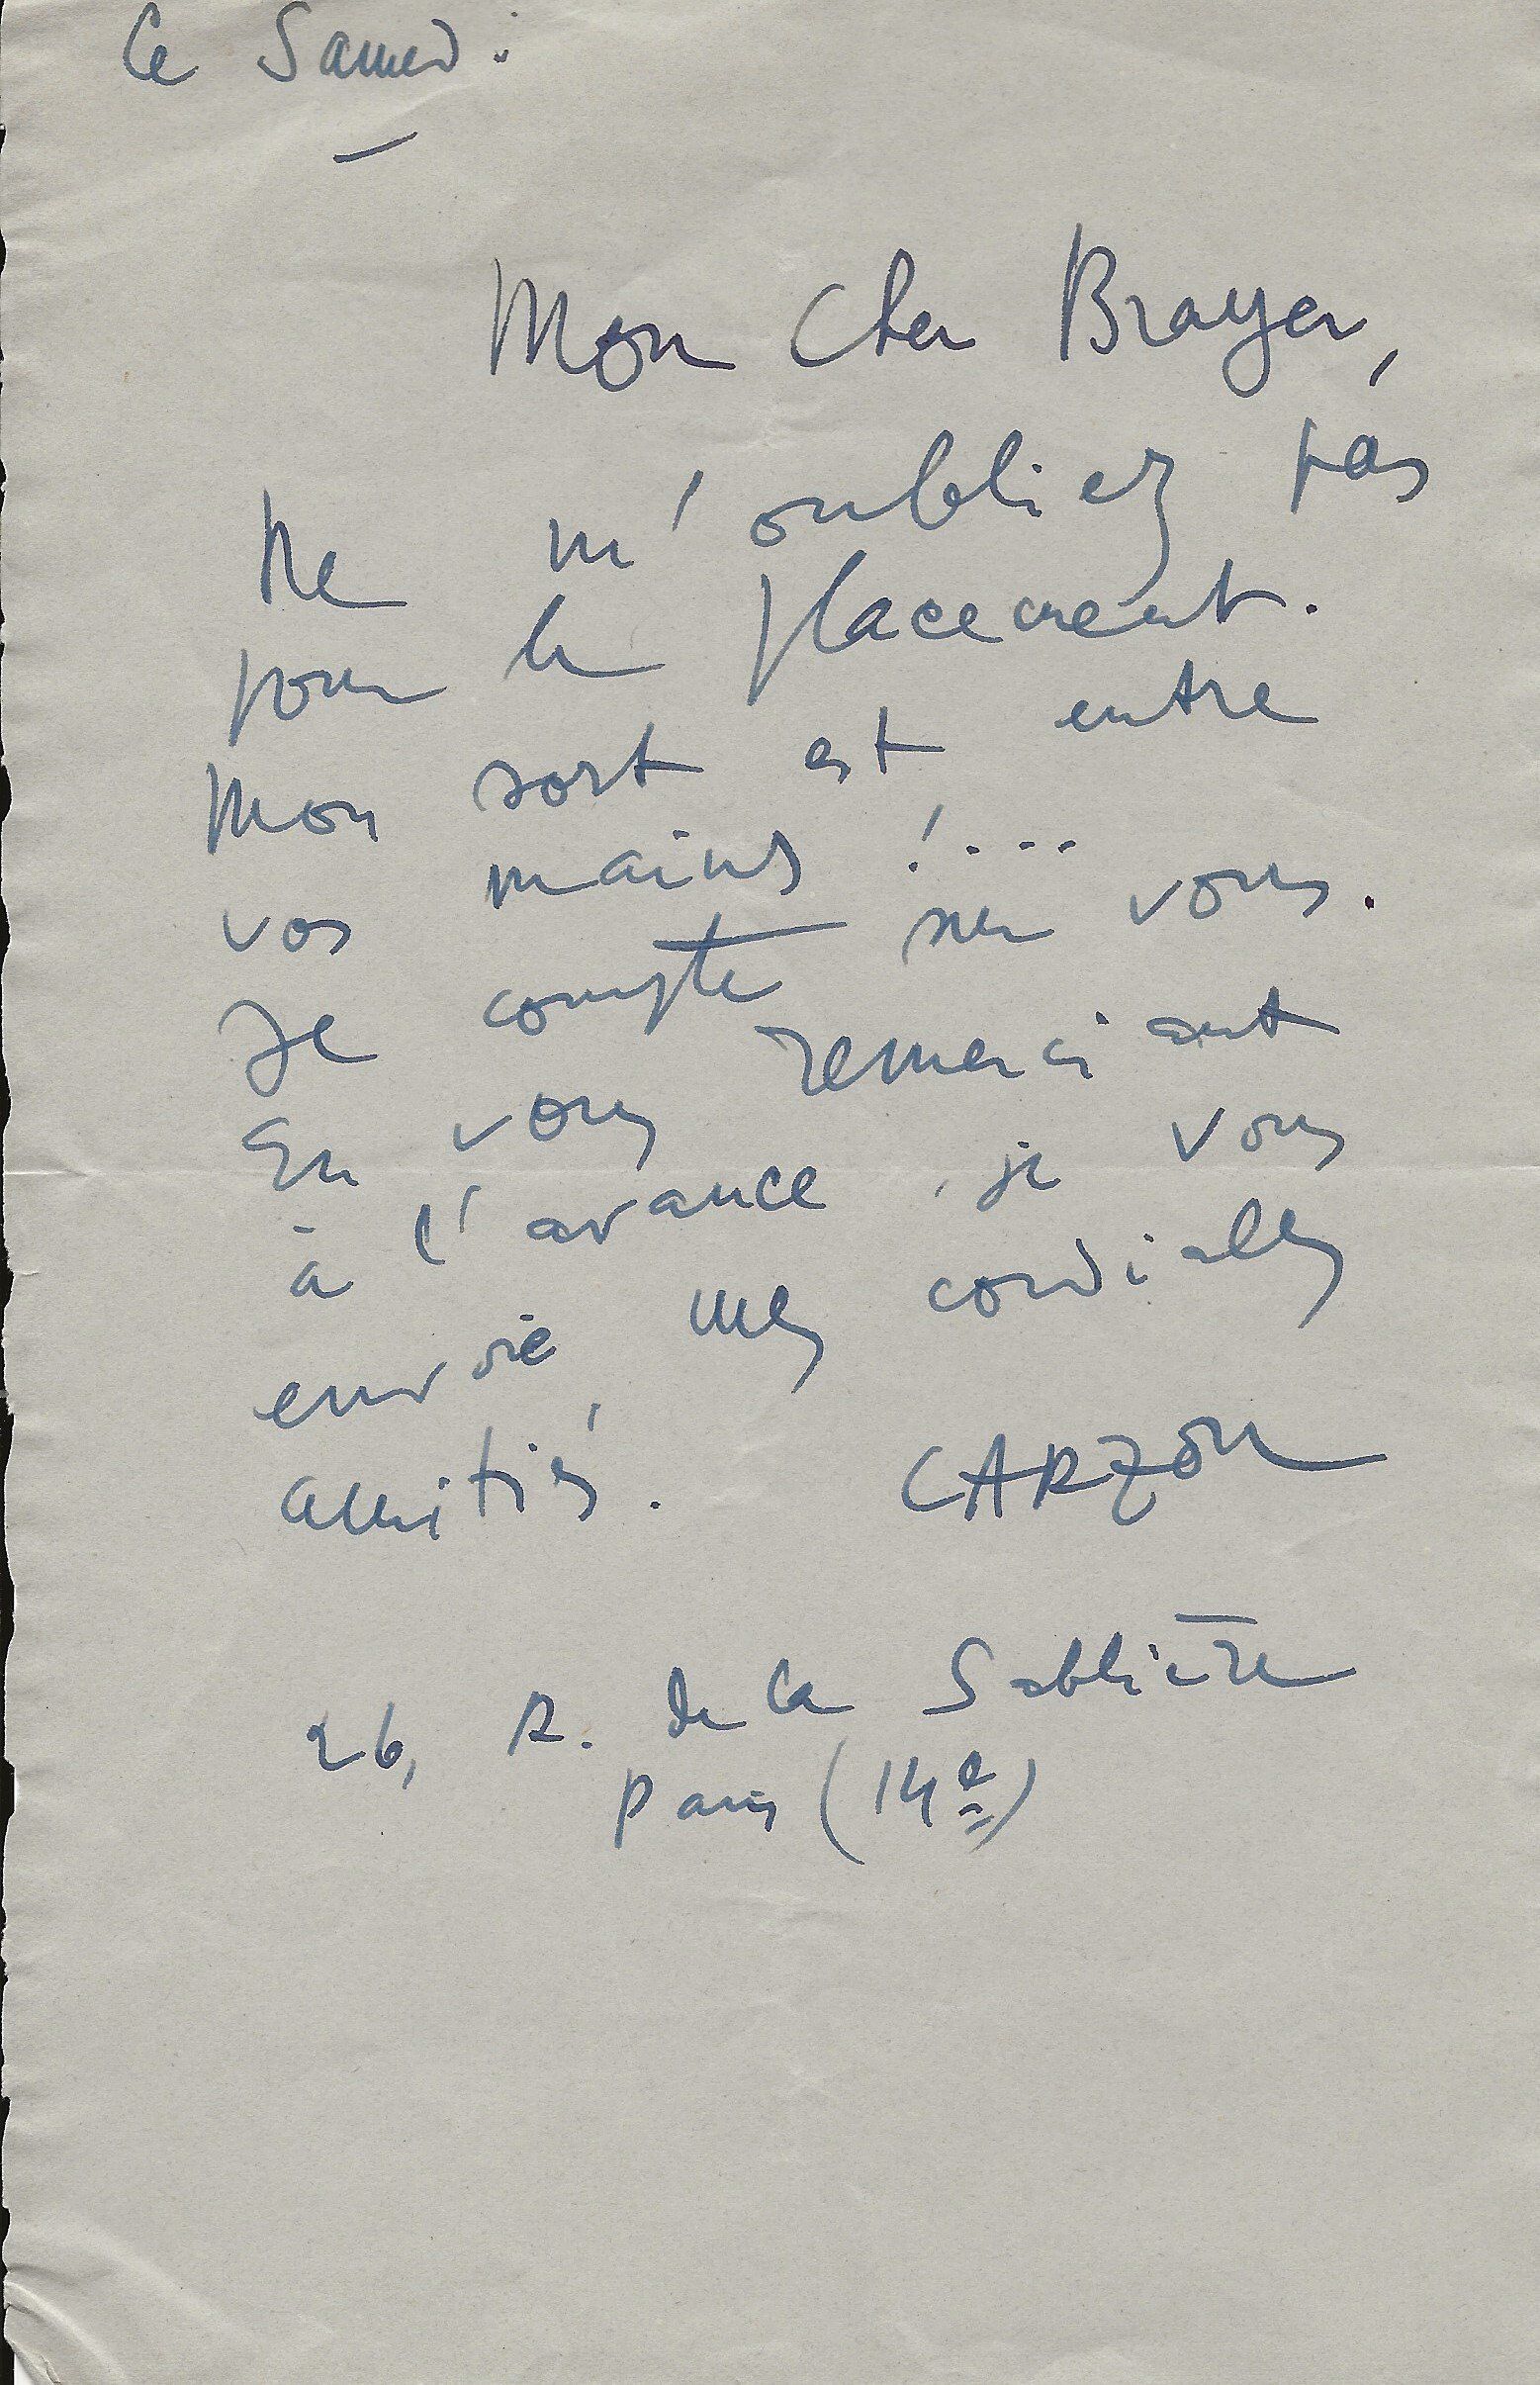 Ce Samedi
Mon Cher Brayer,
Ne m'oubliez pas
pour le placement.
Mon sort est entre
vos mains !...
Je compte sur vous.
En vous remerciant
à l'avance, je vous
envoie mes cordiales
amitiés. CARZOU
26, R. de la Sablière
Paris (14e)